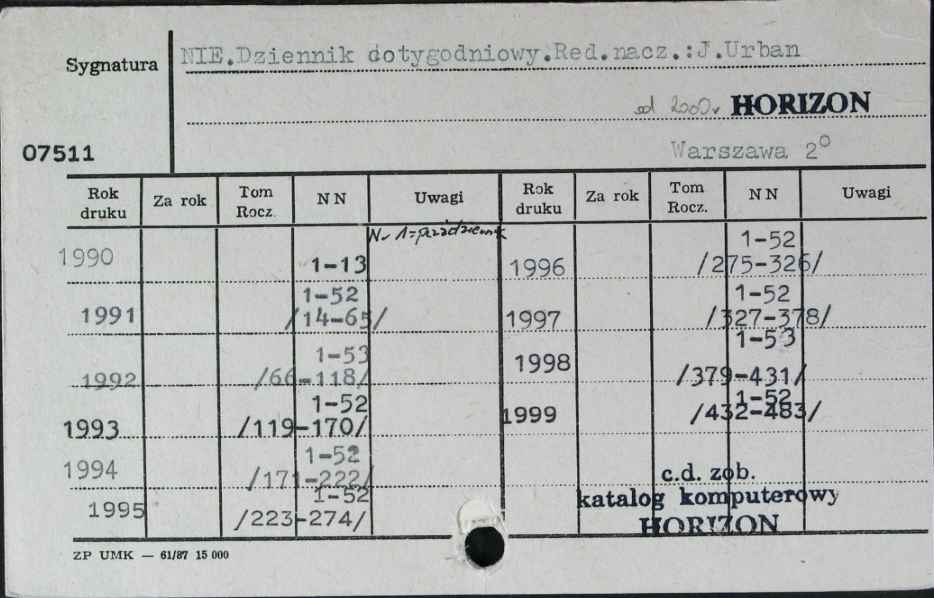 Sygnatura
NIE.Dziennik cotygodniowy.Red.nacz.:J.Urban
od 2000r HORIZON
07511
Warszawa 2°
Rok druku Za rok Tom Rocz. NN Uwagi Rok druku Za rok Tom Rocz. NN Uwagi
Nr 1=październik
1990 1-13
1991 1-52 /14-65/
1992 1-53 /66-118/
1993 1-52 /119-170/
1994 1-52 /171-222/
1995 1-52 /223-274/
1996 1-52 /275-326/
1997 1-52 /327-378/
1998 1-53 /379-431/
1999 1-52 /432-483/
c.d. zob.
katalog komputerowy
HORIZON
ZP UMK — 61/87 15 000